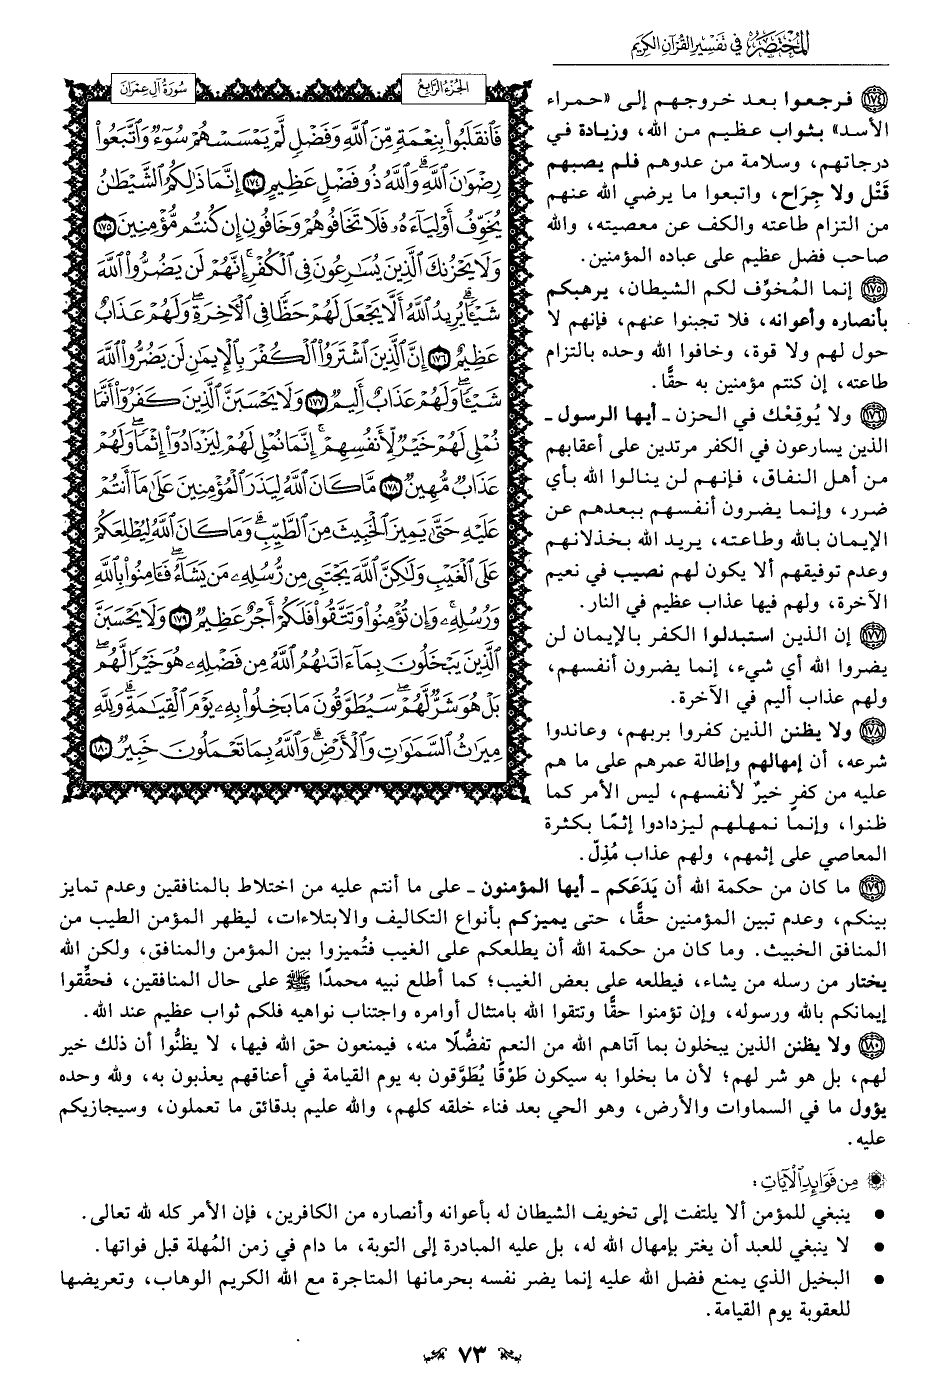 المختصر في تفسير القرآن الكريم
الجزء الرابع
سورة آل عمران
فَٱنقَلَبُوا۟ بِنِعْمَةٍ مِّنَ ٱللَّهِ وَفَضْلٍ لَّمْ يَمْسَسْهُمْ سُوٓءٌ وَٱتَّبَعُوا۟
رِضْوَٰنَ ٱللَّهِ ۗ وَٱللَّهُ ذُو فَضْلٍ عَظِيمٍ ١٧٤ إِنَّمَا ذَٰلِكُمُ ٱلشَّيْطَٰنُ
يُخَوِّفُ أَوْلِيَآءَهُۥ فَلَا تَخَافُوهُمْ وَخَافُونِ إِن كُنتُم مُّؤْمِنِينَ ١٧٥
وَلَا يَحْزُنكَ ٱلَّذِينَ يُسَٰرِعُونَ فِى ٱلْكُفْرِ ۚ إِنَّهُمْ لَن يَضُرُّوا۟ ٱللَّهَ
شَيْـًٔا ۗ يُرِيدُ ٱللَّهُ أَلَّا يَجْعَلَ لَهُمْ حَظًّا فِى ٱلْـَٔاخِرَةِ ۖ وَلَهُمْ عَذَابٌ
عَظِيمٌ ١٧٦ إِنَّ ٱلَّذِينَ ٱشْتَرَوُا۟ ٱلْكُفْرَ بِٱلْإِيمَٰنِ لَن يَضُرُّوا۟ ٱللَّهَ
شَيْـًٔا ۖ وَلَهُمْ عَذَابٌ أَلِيمٌ ١٧٧ وَلَا يَحْسَبَنَّ ٱلَّذِينَ كَفَرُوٓا۟ أَنَّمَا
نُمْلِى لَهُمْ خَيْرٌ لِّأَنفُسِهِمْ ۚ إِنَّمَا نُمْلِى لَهُمْ لِيَزْدَادُوٓا۟ إِثْمًا ۚ وَلَهُمْ
عَذَابٌ مُّهِينٌ ١٧٨ مَّا كَانَ ٱللَّهُ لِيَذَرَ ٱلْمُؤْمِنِينَ عَلَىٰ مَآ أَنتُمْ
عَلَيْهِ حَتَّىٰ يَمِيزَ ٱلْخَبِيثَ مِنَ ٱلطَّيِّبِ ۗ وَمَا كَانَ ٱللَّهُ لِيُطْلِعَكُمْ
عَلَى ٱلْغَيْبِ وَلَٰكِنَّ ٱللَّهَ يَجْتَبِى مِن رُّسُلِهِۦ مَن يَشَآءُ ۖ فَـَٔامِنُوا۟ بِٱللَّهِ
وَرُسُلِهِۦ ۚ وَإِن تُؤْمِنُوا۟ وَتَتَّقُوا۟ فَلَكُمْ أَجْرٌ عَظِيمٌ ١٧٩ وَلَا يَحْسَبَنَّ
ٱلَّذِينَ يَبْخَلُونَ بِمَآ ءَاتَىٰهُمُ ٱللَّهُ مِن فَضْلِهِۦ هُوَ خَيْرًا لَّهُم ۖ
بَلْ هُوَ شَرٌّ لَّهُمْ ۖ سَيُطَوَّقُونَ مَا بَخِلُوا۟ بِهِۦ يَوْمَ ٱلْقِيَٰمَةِ ۗ وَلِلَّهِ
مِيرَٰثُ ٱلسَّمَٰوَٰتِ وَٱلْأَرْضِ ۗ وَٱللَّهُ بِمَا تَعْمَلُونَ خَبِيرٌ ١٨٠
١٧٤ فرجعوا بعد خروجهم إلى «حمراء
الأسد» بثواب عظيم من الله، وزيادة في
درجاتهم، وسلامة من عدوهم فلم يصبهم
قَتْل ولا جِرَاح، واتبعوا ما يرضي الله عنهم
من التزام طاعته والكف عن معصيته، والله
صاحب فضل عظيم على عباده المؤمنين.
١٧٥ إنما المُخوِّف لكم الشيطان، يرهبكم
بأنصاره وأعوانه، فلا تجبنوا عنهم، فإنهم لا
حول لهم ولا قوة، وخافوا الله وحده بالتزام
طاعته، إن كنتم مؤمنين به حقًّا.
١٧٦ ولا يُوقِعْك في الحزن ـ أيها الرسول ـ
الذين يسارعون في الكفر مرتدين على أعقابهم
من أهل النفاق، فإنهم لن ينالوا الله بأي
ضرر، وإنما يضرون أنفسهم ببعدهم عن
الإيمان بالله وطاعته، يريد الله بخذلانهم
وعدم توفيقهم ألا يكون لهم نصيب في نعيم
الآخرة، ولهم فيها عذاب عظيم في النار.
١٧٧ إن الذين استبدلوا الكفر بالإيمان لن
يضروا الله أي شيء، إنما يضرون أنفسهم،
ولهم عذاب أليم في الآخرة.
١٧٨ ولا يظنن الذين كفروا بربهم، وعاندوا
شرعه، أن إمهالهم وإطالة عمرهم على ما هم
عليه من كفرٍ خيرٌ لأنفسهم، ليس الأمر كما
ظنوا، وإنما نمهلهم ليزدادوا إثمًا بكثرة
المعاصي على إثمهم، ولهم عذاب مُذِلّ.
١٧٩ ما كان من حكمة الله أن يَدَعَكم ـ أيها المؤمنون ـ على ما أنتم عليه من اختلاط بالمنافقين وعدم تمايز
بينكم، وعدم تبين المؤمنين حقًّا، حتى يميزكم بأنواع التكاليف والابتلاءات، ليظهر المؤمن الطيب من
المنافق الخبيث. وما كان من حكمة الله أن يطلعكم على الغيب فتُميزوا بين المؤمن والمنافق، ولكن الله
يختار من رسله من يشاء، فيطلعه على بعض الغيب؛ كما أطلع نبيه محمدًا ﷺ على حال المنافقين، فحقِّقوا
إيمانكم بالله ورسوله، وإن تؤمنوا حقًّا وتتقوا الله بامتثال أوامره واجتناب نواهيه فلكم ثواب عظيم عند الله.
١٨٠ ولا يظنن الذين يبخلون بما آتاهم الله من النعم تفضُّلًا منه، فيمنعون حق الله فيها، لا يظنُّوا أن ذلك خير
لهم، بل هو شر لهم؛ لأن ما بخلوا به سيكون طَوْقًا يُطَوَّقون به يوم القيامة في أعناقهم يعذبون به، ولله وحده
يؤول ما في السماوات والأرض، وهو الحي بعد فناء خلقه كلهم، والله عليم بدقائق ما تعملون، وسيجازيكم
عليه.
من فوائد الآيات:
● ينبغي للمؤمن ألا يلتفت إلى تخويف الشيطان له بأعوانه وأنصاره من الكافرين، فإن الأمر كله لله تعالى.
● لا ينبغي للعبد أن يغتر بإمهال الله له، بل عليه المبادرة إلى التوبة، ما دام في زمن المُهلة قبل فواتها.
● البخيل الذي يمنع فضل الله عليه إنما يضر نفسه بحرمانها المتاجرة مع الله الكريم الوهاب، وتعريضها
للعقوبة يوم القيامة.
٧٣